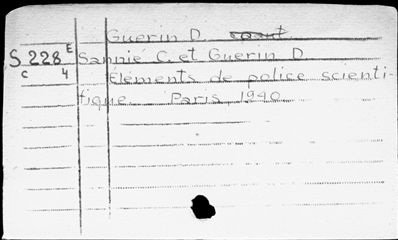 Guerin D.
S 228 E Sannié C. et Guerin D
c 4 Eléments de police scienti-
fique. Paris 1940